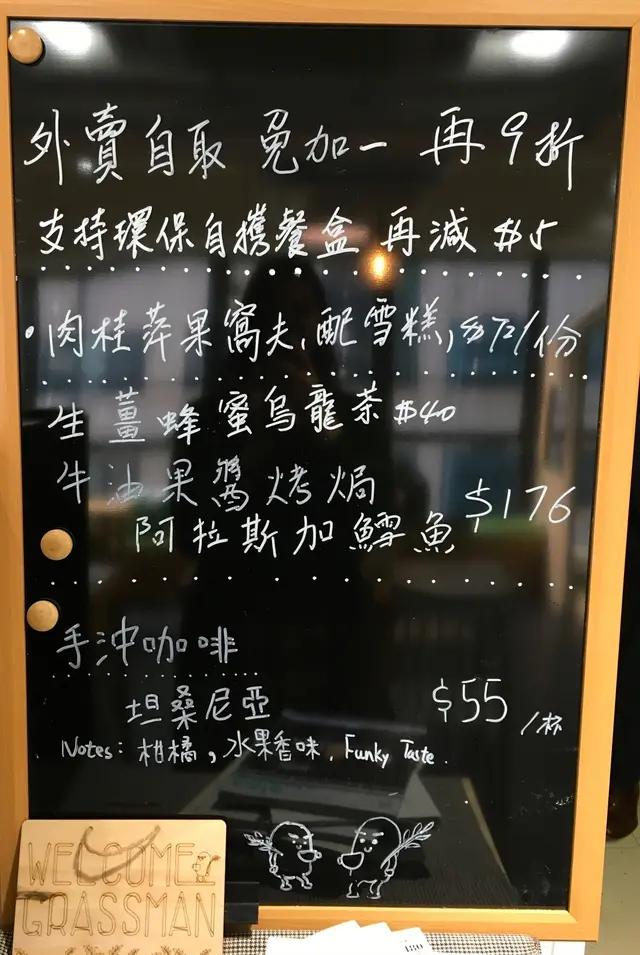 外賣自取 免加一 再9折
支持環保自攜餐盒 再減 $5
• 肉桂苹果窩夫, 配雪糕, $72/份
生薑蜂蜜烏龍茶 $40
牛油果醬烤焗
阿拉斯加鱈魚 $176
手沖咖啡
坦桑尼亞 $55/杯
Notes: 柑橘, 水果香味, Funky Taste.
WELCOME
GRASSMAN